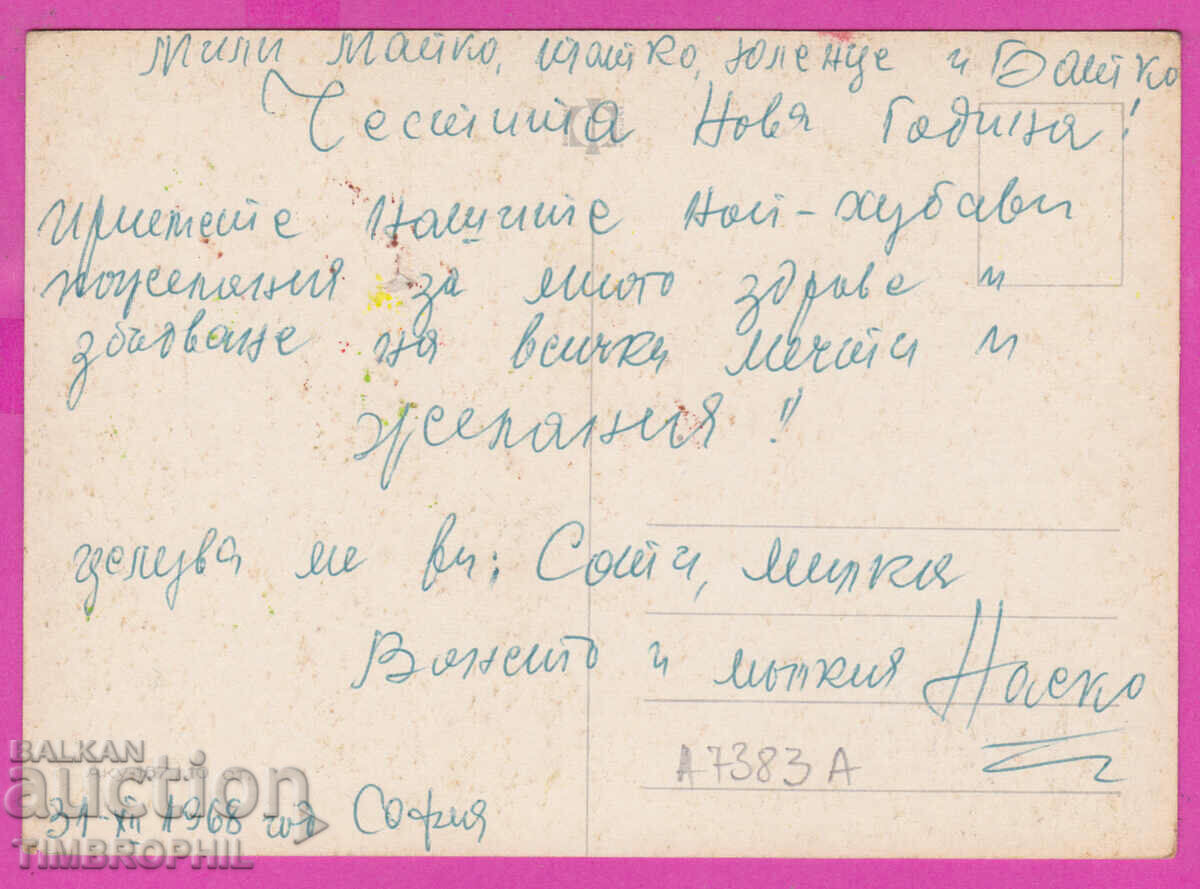 Мили Майко, татко, Юленце и Батко
Честита Новя Година!
Приемете Нашите Най-хубави
пожелания за много здраве и
збъдване на всички мечти и
желания!!
целува ме ви: Сати, Милка
Ването и малкия Наско
А7383А
BALKAN
auction
31-XII 1968 год София
TIMBROPHIL